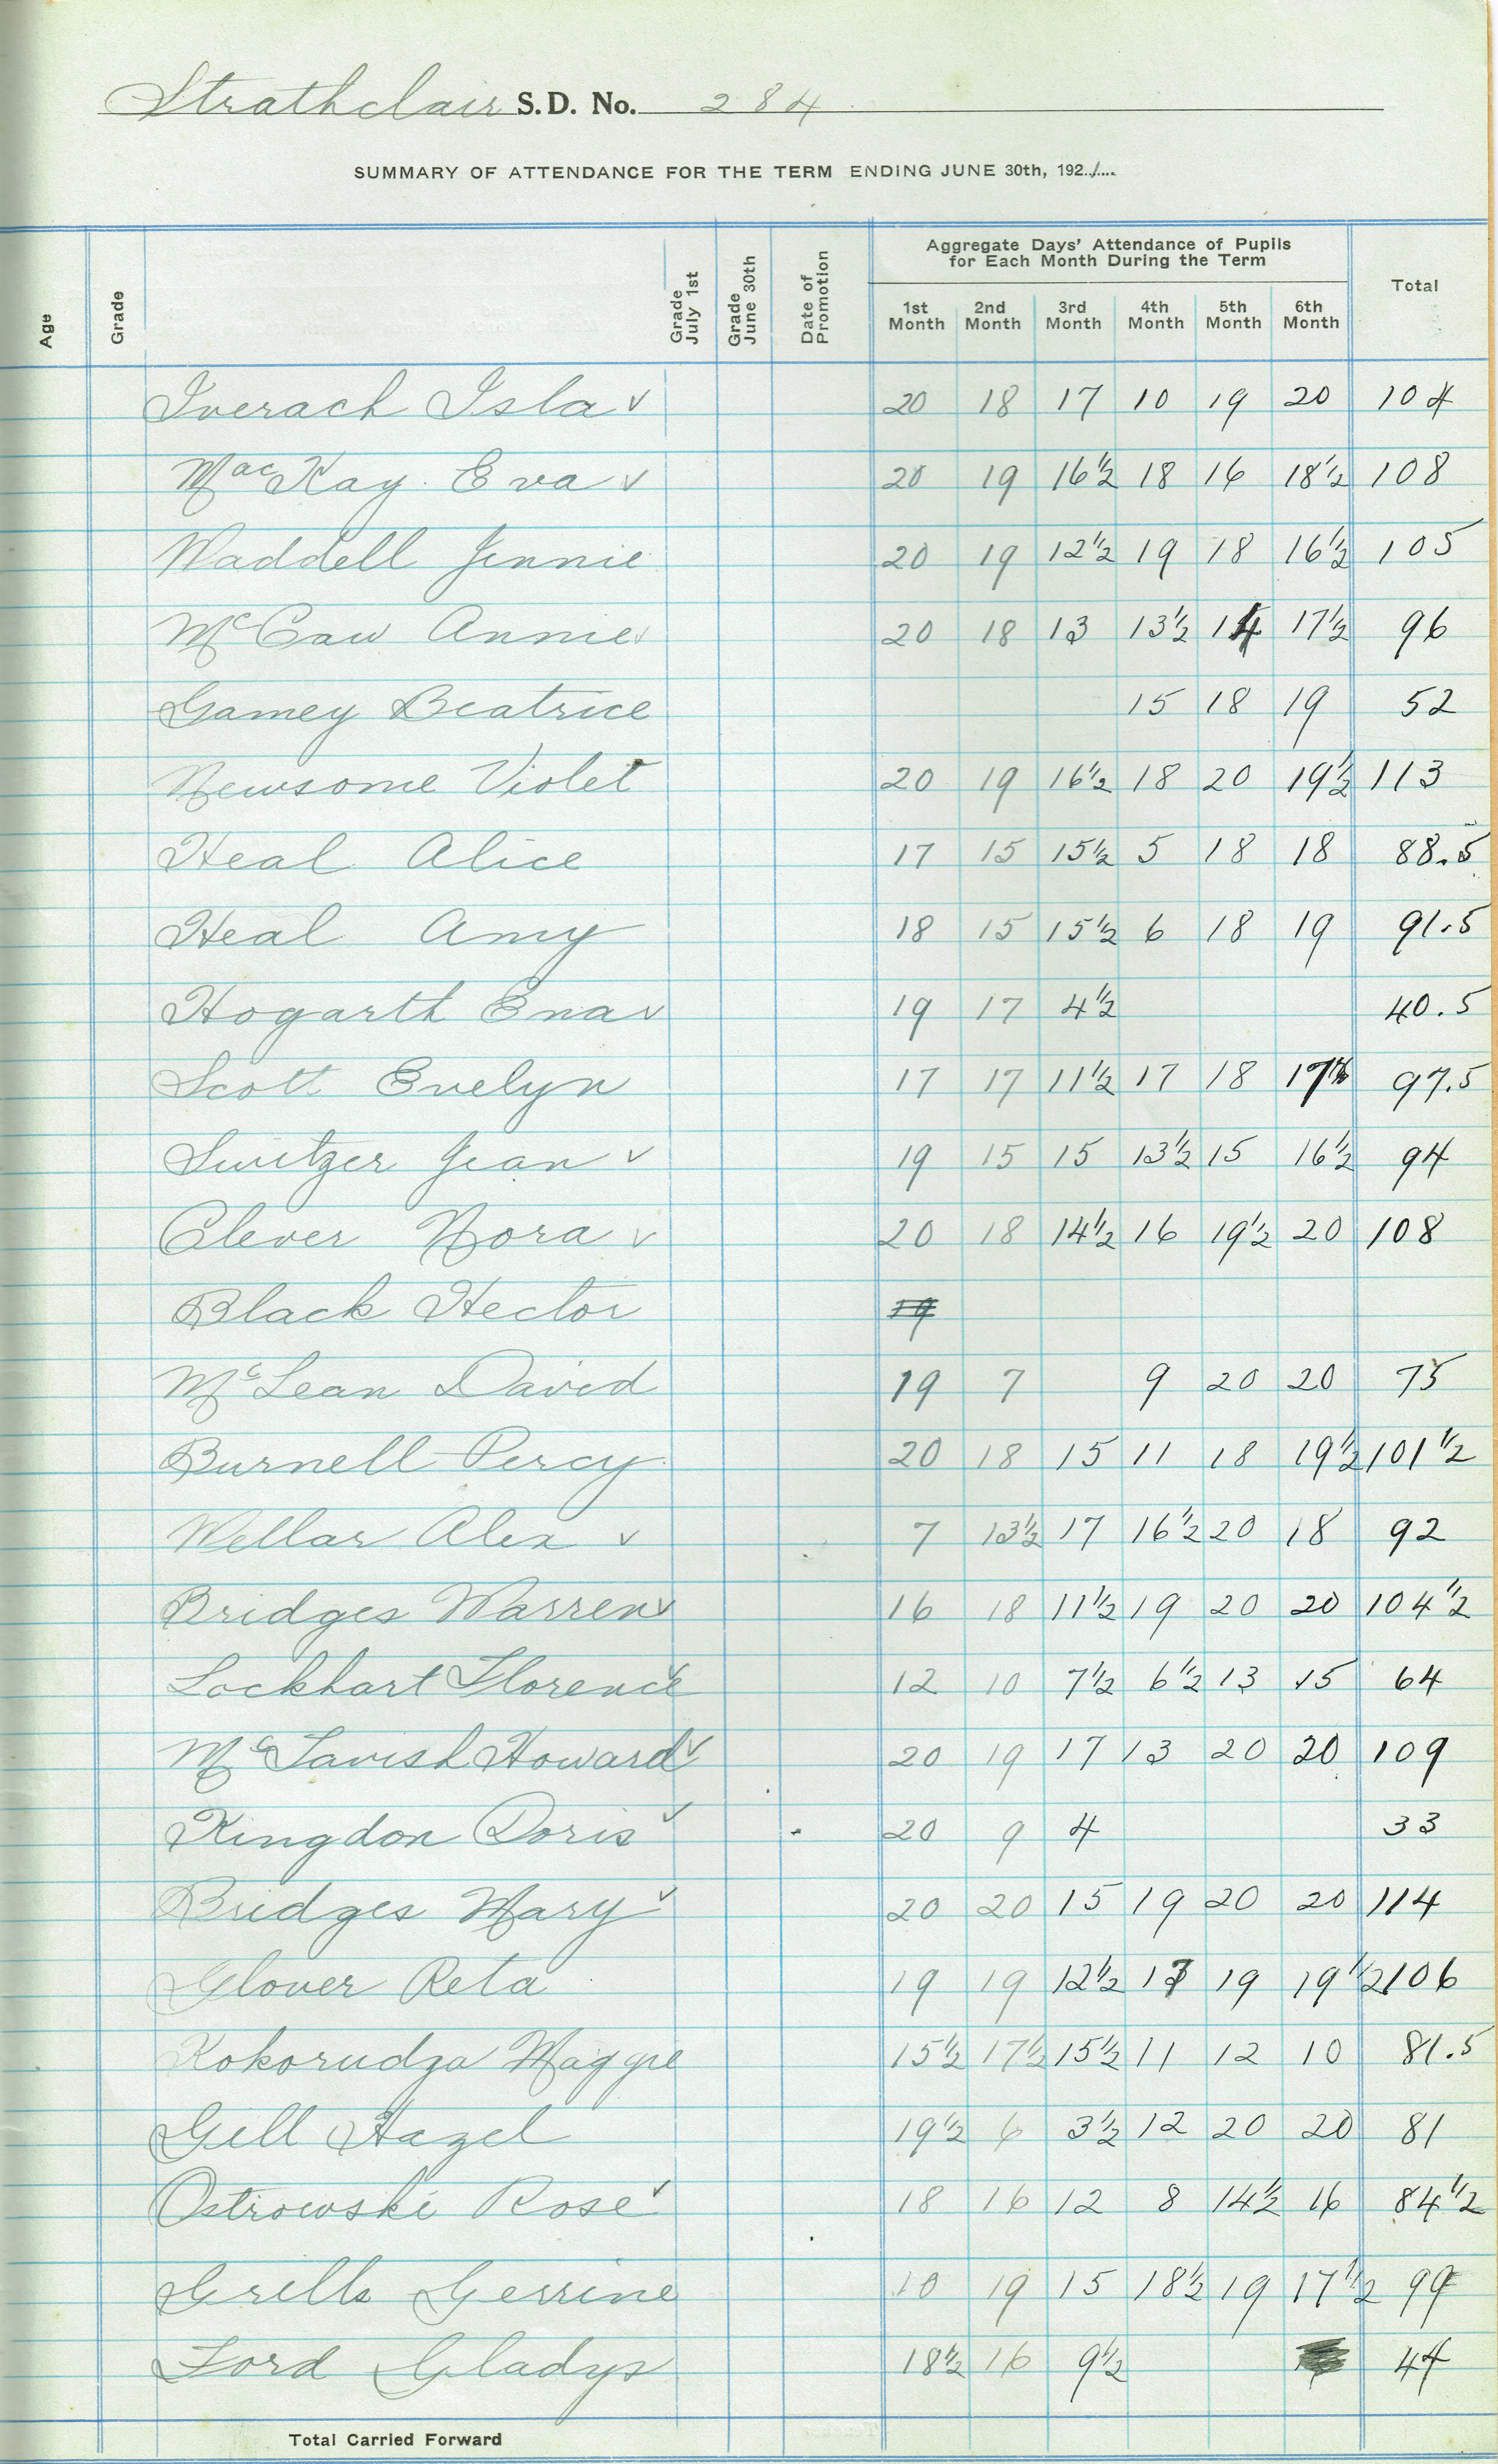 Strathclair S.D. No. 284
SUMMARY OF ATTENDANCE FOR THE TERM ENDING JUNE 30th, 1921
Age Grade Grade July 1st Grade June 30th Date of Promotion Aggregate Days' Attendance of Pupils for Each Month During the Term Total
1st Month 2nd Month 3rd Month 4th Month 5th Month 6th Month
Iverach Isla ✓ 20 18 17 10 19 20 104
MacKay Eva ✓ 20 19 16½ 18 16 18½ 108
Waddell Jennie 20 19 12½ 19 18 16½ 105
McCaw Annie ✓ 20 18 13 13½ 14 17½ 96
Gamey Beatrice 15 18 19 52
Newsome Violet 20 19 16½ 18 20 19½ 113
Heal Alice 17 15 15½ 5 18 18 88.5
Heal Amy 18 15 15½ 6 18 19 91.5
Hogarth Ena ✓ 19 17 4½ 40.5
Scott Evelyn 17 17 11½ 17 18 17 97.5
Switzer Jean ✓ 19 15 15 13½ 15 16½ 94
Clever Nora ✓ 20 18 14½ 16 19½ 20 108
Black Hector 19
McLean David 19 7 9 20 20 75
Burnell Percy 20 18 15 11 18 19½ 101½
Wellar Alex ✓ 7 13½ 17 16½ 20 18 92
Bridges Warren ✓ 16 18 11½ 19 20 20 104½
Lockhart Florence ✓ 12 10 7½ 6½ 13 15 64
McTavish Howard ✓ 20 19 17 13 20 20 109
Kingdon Doris ✓ 20 9 4 33
Bridges Mary ✓ 20 20 15 19 20 20 114
Glover Reta 19 19 12½ 17 19 19½ 106
Kokorudza Maggie 15½ 17½ 15½ 11 12 10 81.5
Gill Hazel 19½ 6 3½ 12 20 20 81
Ostrowski Rose ✓ 18 16 12 8 14½ 16 84½
Grills Gerrine 10 19 15 18½ 19 17½ 99
Ford Gladys 18½ 16 9½ 44
Total Carried Forward